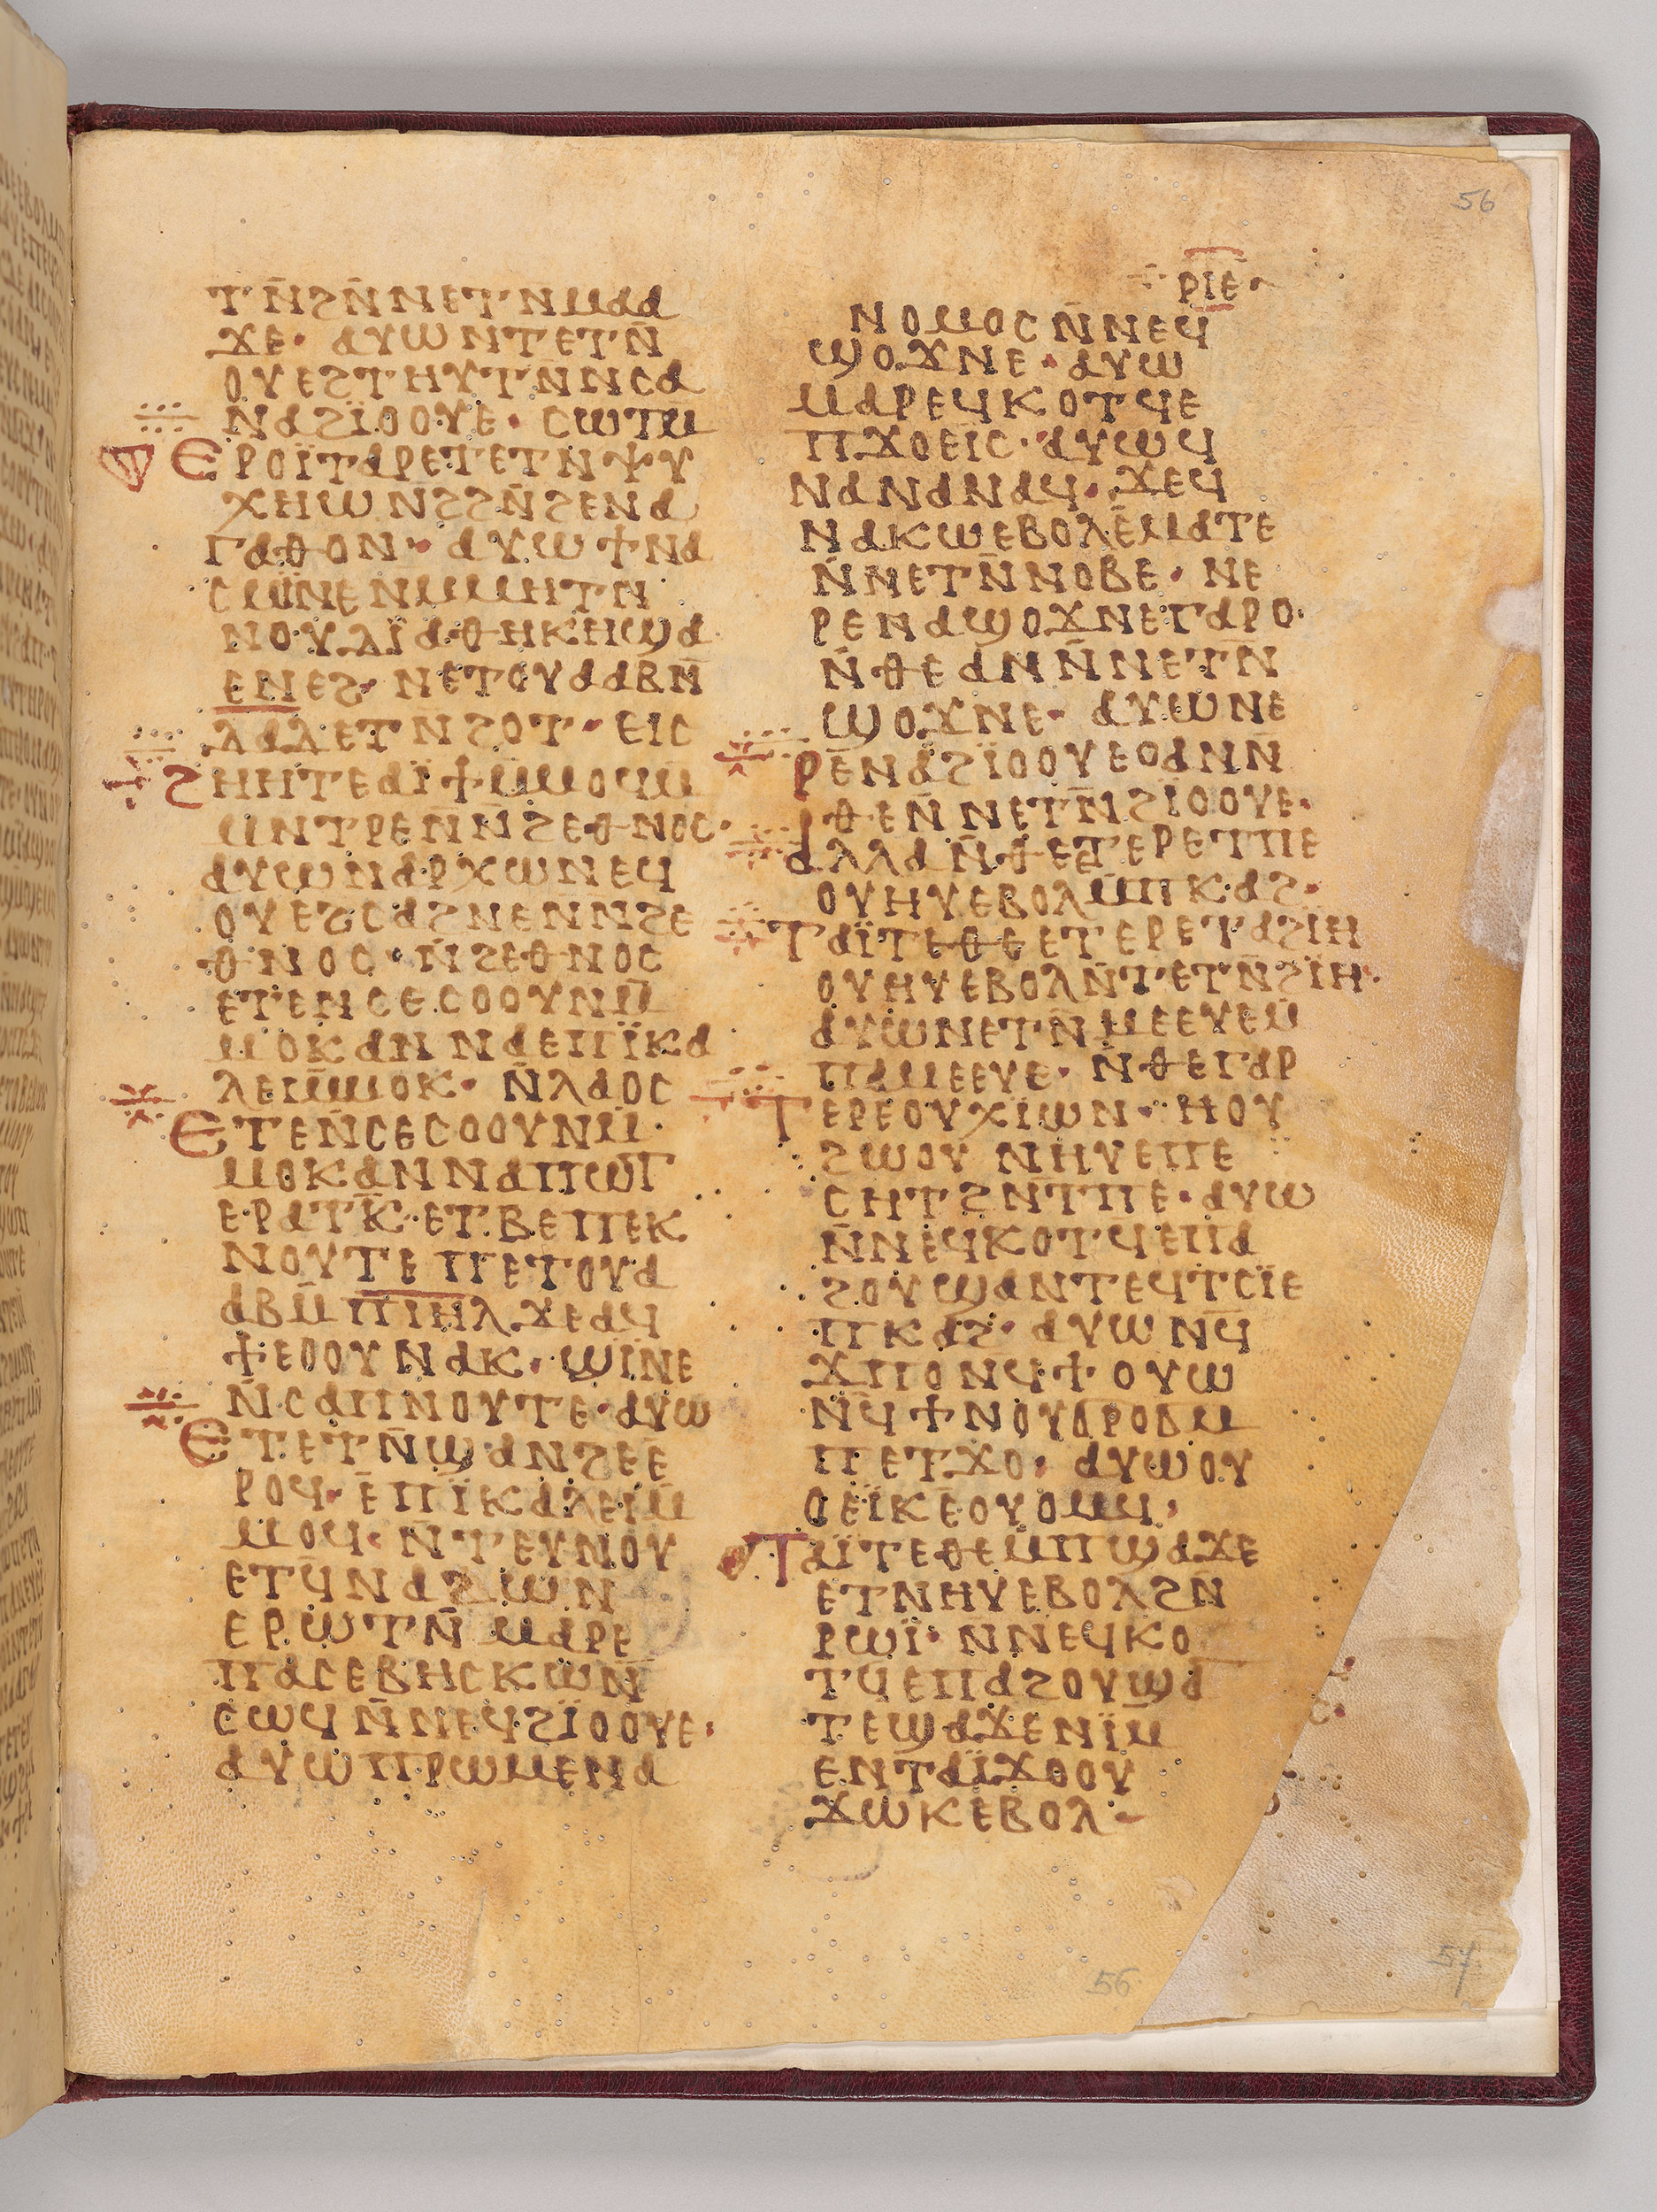 56
ⲣⲓⲉ
ⲧⲛ̄ϩⲛ̄ⲛⲉⲧⲛⲙⲁⲁ
ϫⲉ· ⲁⲩⲱⲛⲧⲉⲧⲛ̄
ⲟⲩⲉϩⲧⲏⲩⲧⲛ̄ⲛⲥⲁ
ⲛⲁϩⲓ̈ⲟⲟⲩⲉ· ⲥⲱⲧⲙ̄
ⲉⲣⲟⲓ̈ⲧⲁⲣⲉⲧⲉⲧⲛⲯⲩ
ⲭⲏⲱⲛϩϩⲛ̄ϩⲉⲛⲁ
ⲅⲁⲑⲟⲛ· ⲁⲩⲱϯⲛⲁ
ⲥⲙⲓ̈ⲛⲉⲛⲙⲙⲏⲧⲛ
ⲛⲟⲩⲇⲓ̈ⲁⲑⲏⲕⲏϣⲁ
ⲉⲛⲉϩ· ⲛⲉⲧⲟⲩⲁⲁⲃⲛ̄
ⲇⲁⲇⲉⲧⲛϩⲟⲧ· ⲉⲓⲥ
ϩⲏⲏⲧⲉⲁⲓ̈ϯⲙ̄ⲙⲟϥⲙ̄
ⲙⲛⲧⲣⲉⲛ̄ⲛ̄ϩⲉⲑⲛⲟⲥ·
ⲁⲩⲱⲛⲁⲣⲭⲱⲛⲉϥ
ⲟⲩⲉϩⲥⲁϩⲛⲉⲛⲛϩⲉ
ⲑⲛⲟⲥ· ⲛ̄ϩⲉⲑⲛⲟⲥ
ⲉⲧⲉⲛⲥⲉⲥⲟⲟⲩⲛⲙ̄
ⲙⲟⲕⲁⲛⲛⲁⲉⲡⲓ̈ⲕⲁ
ⲗⲉⲓⲙ̄ⲙⲟⲕ· ⲛ̄ⲗⲁⲟⲥ
ⲉⲧⲉⲛ̄ⲥⲉⲥⲟⲟⲩⲛⲙ̄
ⲙⲟⲕⲁⲛⲛⲁⲡⲱⲧ
ⲉⲣⲁⲧⲕ̄·ⲉⲧⲃⲉⲡⲉⲕ
ⲛⲟⲩⲧⲉ ⲡⲉⲧⲟⲩⲁ
ⲁⲃⲙ̄ⲡⲓⲏⲗ·ϫⲉⲁϥ
ϯⲉⲟⲟⲩⲛⲁⲕ· ϣⲓ̈ⲛⲉ
ⲛ̄ⲥⲁⲡⲛⲟⲩⲧⲉ·ⲁⲩⲱ
ⲉⲧⲉⲧⲛ̄ϣⲁⲛϩⲉⲉ
ⲣⲟϥ· ⲉ̄ⲡⲓ̈ⲕⲁⲗⲉⲓⲙ̄
ⲙⲟϥ· ⲛ̄ⲧⲉⲩⲛⲟⲩ
ⲉⲧϥⲛⲁϩⲱⲛ
ⲉⲣⲱⲧⲛ̄ ⲙⲁⲣⲉ
ⲡⲁⲥⲉⲃⲏⲥⲕⲱⲛ̄
ⲥⲱϥⲛ̄ⲛⲉϥϩⲓ̈ⲟⲟⲩⲉ·
ⲁⲩⲱⲡⲣⲱⲙⲉⲛⲁ
ⲛⲟⲙⲟⲥⲛ̄ⲛⲉϥ
ϣⲟϫⲛⲉ·ⲁⲩⲱ
ⲙⲁⲣⲉϥⲕⲟⲧϥⲉ
ⲡϫⲟⲉⲓⲥ·ⲁⲩⲱϥ
ⲛⲁⲛⲁⲛⲁϥ·ϫⲉϥ
ⲛⲁⲕⲱⲉⲃⲟⲗⲉ̄ⲙⲁⲧⲉ
ⲛ̄ⲛⲉⲧⲛ̄ⲛⲟⲃⲉ· ⲛⲉ
ⲣⲉⲛⲁϣⲟϫⲛⲉⲅⲁⲣⲟ·
ⲛ̄ⲑⲉⲁⲛⲛ̄ⲛⲉⲧⲛ̄
ϣⲟϫⲛⲉ· ⲁⲩⲱⲛⲉ
ⲣⲉⲛⲁϩⲓ̈ⲟⲟⲩⲉⲟⲁⲛⲛ̄
ⲑⲉⲛ̄ⲛⲉⲧⲛ̄ϩⲓ̈ⲟⲟⲩⲉ·
ⲁⲗⲗⲁⲛ̄ⲑⲉⲉⲧⲉⲣⲉⲧⲡⲉ
ⲟⲩⲏⲩⲉⲃⲟⲗⲙ̄ⲡⲕⲁϩ·
ⲧⲁⲓ̈ⲧⲉⲑⲉⲉⲧⲉⲣⲉⲧⲁϩⲓ̈ⲏ
ⲟⲩⲏⲩⲉⲃⲟⲗⲛ̄ⲧⲉⲧⲛ̄ϩⲓ̈ⲏ·
ⲁⲩⲱⲛⲉⲧⲛ̄ⲙⲉⲉⲩⲉⲙ̄
ⲡⲁⲙⲉⲉⲩⲉ· ⲛ̄ⲑⲉⲅⲁⲣ
ⲧⲉⲣⲉⲟⲩⲭⲓⲱⲛ· ⲏⲟⲩ
ϩⲱⲟⲩ ⲛⲏⲩⲉⲡⲉ
ⲥⲏⲧϩⲛ̄ⲧⲡⲉ·ⲁⲩⲱ
ⲛ̄ⲛⲉϥⲕⲟⲧϥⲉⲡⲁ
ϩⲟⲩϣⲁⲛⲧⲉϥⲧⲥⲓ̈ⲉ
ⲡⲕⲁϩ· ⲁⲩⲱⲛϥ̄
ϫⲡⲟⲛϥϯⲟⲩⲱ
ⲛϥ̄ϯⲛⲟⲩϭⲣⲟϭⲙ̄
ⲡⲉⲧϫⲟ· ⲁⲩⲱⲟⲩ
ⲟⲉⲓ̈ⲕⲉⲟⲩⲟⲙϥ·
ⲧⲁⲓ̈ⲧⲉⲑⲉⲙ̄ⲡϣⲁϫⲉ
ⲉⲧⲛⲏⲩⲉⲃⲟⲗϩⲛ̄
ⲣⲱⲓ̈· ⲛⲛⲉϥⲕⲟ
ⲧϥⲉⲡⲁϩⲟⲩϣⲁ
ⲧⲉϣⲁϫⲉⲛⲓ̈ⲙ
ⲉⲛⲧⲁⲓ̈ϫⲟⲟⲩ
ϫⲱⲕⲉⲃⲟⲗ·
56
57